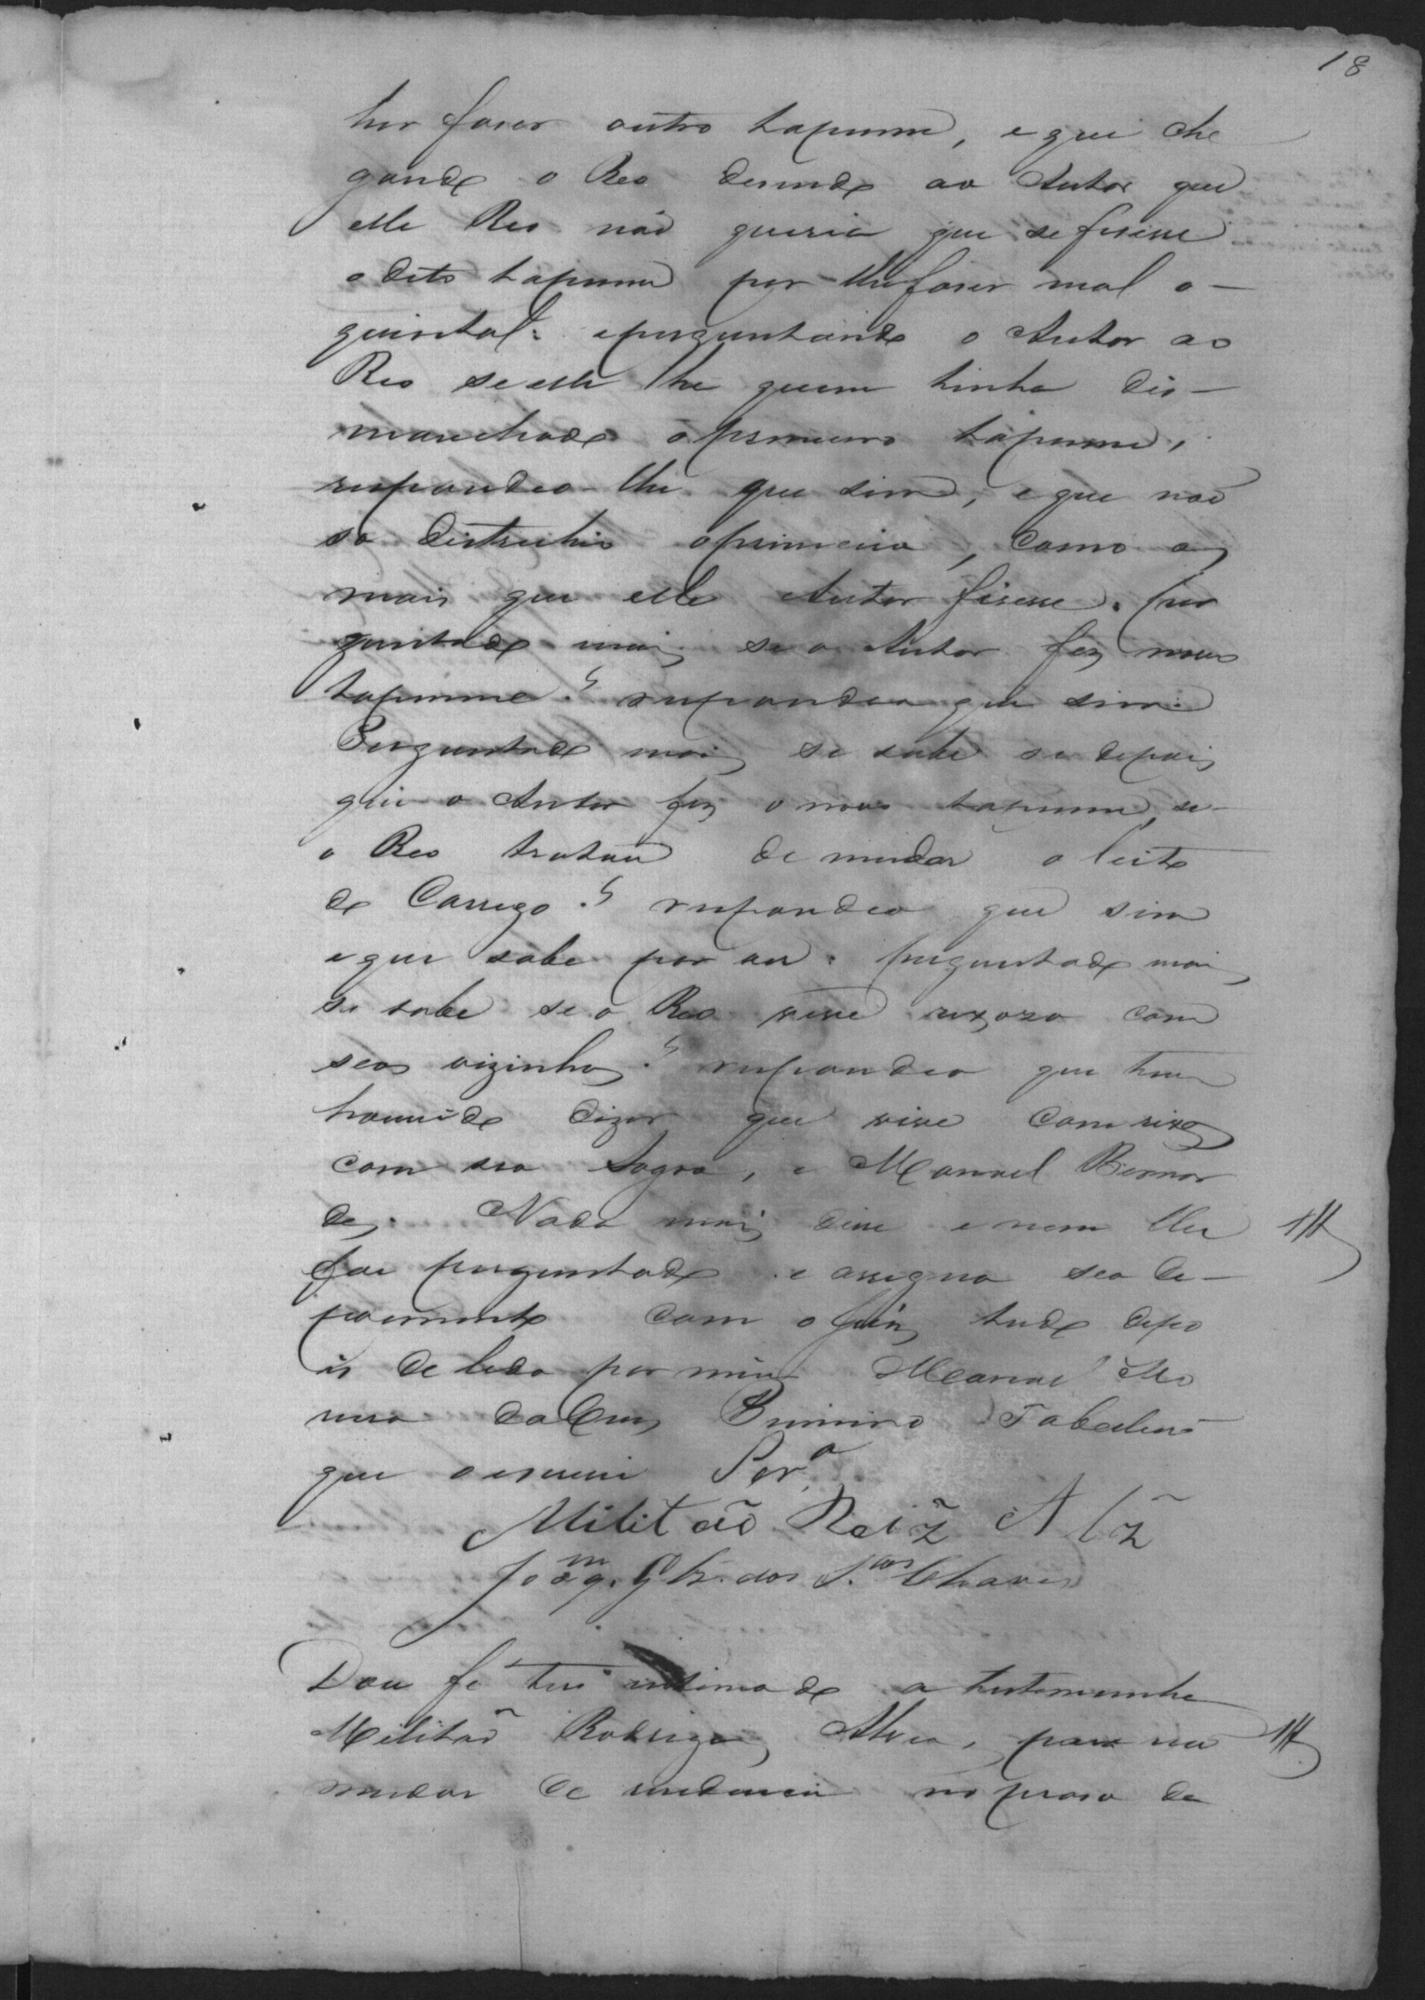 18
hir faser outro tapume, e que che
gando o Reo disendo ao Autor que
elle Reo não queria que se fisesse
o dito tapume por lhe faser mal o
quintal: eperguntando o Autor ao
Reo se elle he quem tinha dis-
manchado oprimeiro tapume,
respondeo-lhe que sim, e que não
só distruhio oprimeiro, como os
mais que elle Autor fisesse. Per
guntado mais se o Autor fez novo
tapume? respondeo que sim.
Perguntado mais se sabe se depois
que o Autor fez o novo tapume, se
o Reo tratou de mudar o leito
do Corrego? respondeo que sim
e que sabe por ver. Perguntado mais
se sabe se o Reo vive rixozo com
seos vizinhos? respondeo que tem
houvido dizer que vive com rixas
com seo sogro, e Manoel Bernar
des. Nada mais disse e nem lhe
foi perguntado e assigna seo de-
poimento com o Juiz, tudo depo
is de lido por mim Manoel Mo
reira da Cruz Tabelião
que o escrevi
Militaõ Roiz Alz
Joaqm. dos S.tos Chaves
Dou fé ter intimado a testemunha
Militaõ Rodrigues Alves, para não
mudar de residencia no praso de